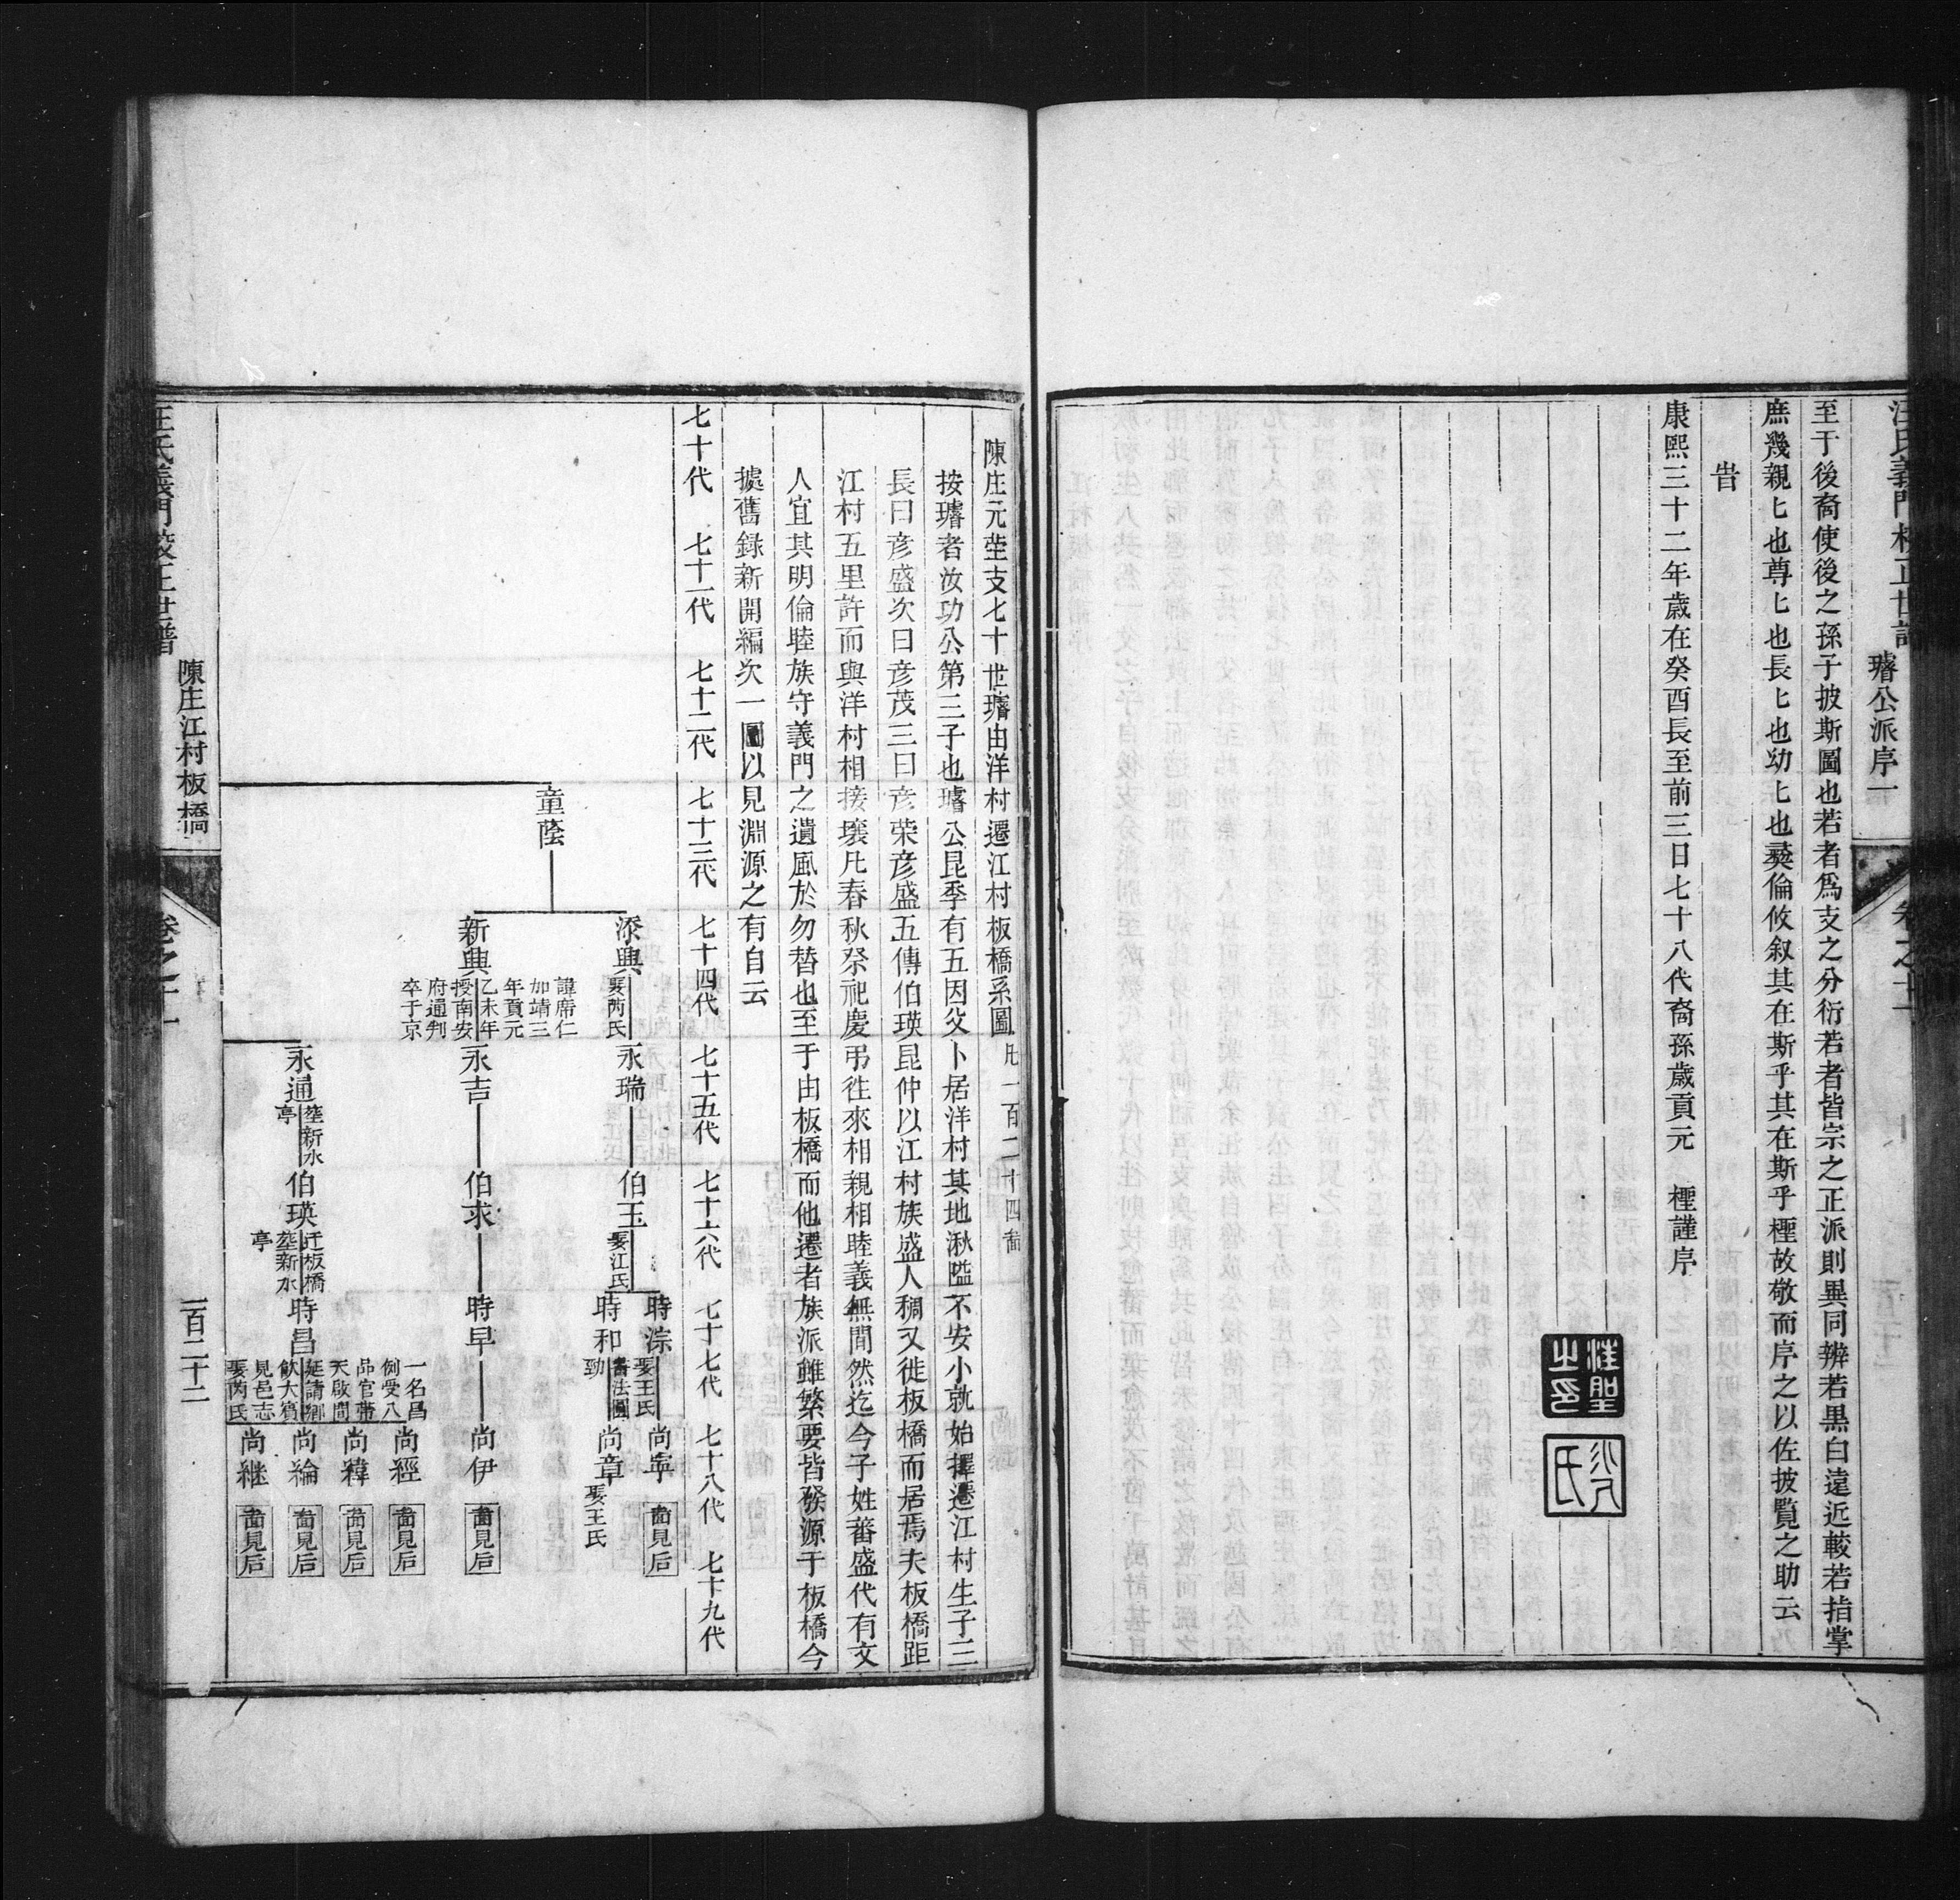 璿公派序一
至于後裔使後之孫子披斯圖也若者爲支之分衍若者皆宗之正派則異同辨若黑白遠近較若指掌
庶幾親匕也尊匕也長匕也幼匕也彛倫攸叙其在斯乎其在斯乎㮚故敬而序之以佐披覽之助云
旹
康熙三十二年歲在癸酉長至前三日七十八代裔孫歲貢元 謹序
陳庄元堂支七十世璿由洋村遷江村板橋系圖
凡一百二十四啚
按璿者汝功公第三子也璿公昆季有五因父卜居洋村其地湫隘不安小就始擇遷江村生子三
長曰彦盛次曰彦茂三曰彦荣彦盛五傳伯瑛昆仲以江村族盛人稠又徙板橋而居焉夫板橋距
江村五里許而與洋村相接壤凡春秋祭祀慶弔往來相親相睦義無間然迄今子姓蕃盛代有文
人宜其明倫睦族守義門之遺風於勿替也至于由板橋而他遷者族派雖繁要皆發源于板橋今
據舊録新開編次一圖以見淵源之有自云
七十代 七十一代 七十二代 七十三代 七十四代 七十五代 七十六代 七十七代 七十八代 七十九代
童蔭
添興
娶芮氏
永瑞
伯玉
娶江氏
時淙
娶王氏
尚寧
啚見后
時和
書法圓
勁
尚章
娶王氏
新興
諱席仁
加靖三
年貢元
乙未年
授南安
府通判
卒于京
永吉
伯求
時早
尚伊
啚見后
永通
塟新水
亭
伯瑛
迁板橋
塟新水
亭
時昌
一名昌
例受八
品官帶
天啟間
延請鄉
飲大賓
見邑志
娶芮氏
尚經
啚見后
尚緯
啚見后
尚綸
啚見后
尚継
啚見后
汪氏義門校正世譜
陳庄江村板橋
卷之十一
一百二十二